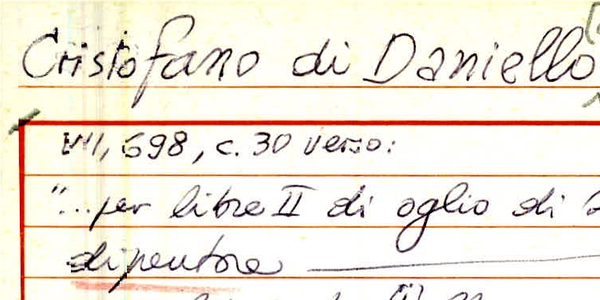 Cristofano di Daniello
VII, 598, c. 30 verso:
"...per libre II di oglio di
dipentore